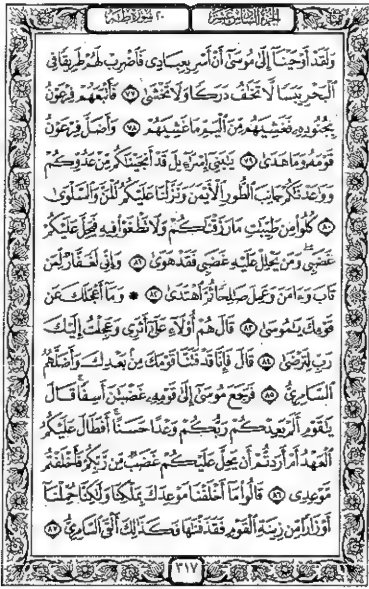 الجزء السادس عشر
٢٠ سورة طه
وَلَقَدْ أَوْحَيْنَآ إِلَىٰ مُوسَىٰٓ أَنْ أَسْرِ بِعِبَادِى فَٱضْرِبْ لَهُمْ طَرِيقًا فِى
ٱلْبَحْرِ يَبَسًا لَّا تَخَٰفُ دَرَكًا وَلَا تَخْشَىٰ ٧٧ فَأَتْبَعَهُمْ فِرْعَوْنُ
بِجُنُودِهِۦ فَغَشِيَهُم مِّنَ ٱلْيَمِّ مَا غَشِيَهُمْ ٧٨ وَأَضَلَّ فِرْعَوْنُ
قَوْمَهُۥ وَمَا هَدَىٰ ٧٩ يَٰبَنِىٓ إِسْرَٰٓءِيلَ قَدْ أَنجَيْنَٰكُم مِّنْ عَدُوِّكُمْ
وَوَٰعَدْنَٰكُمْ جَانِبَ ٱلطُّورِ ٱلْأَيْمَنَ وَنَزَّلْنَا عَلَيْكُمُ ٱلْمَنَّ وَٱلسَّلْوَىٰ
٨٠ كُلُوا۟ مِن طَيِّبَٰتِ مَا رَزَقْنَٰكُمْ وَلَا تَطْغَوْا۟ فِيهِ فَيَحِلَّ عَلَيْكُمْ
غَضَبِى وَمَن يَحْلِلْ عَلَيْهِ غَضَبِى فَقَدْ هَوَىٰ ٨١ وَإِنِّى لَغَفَّارٌ لِّمَن
تَابَ وَءَامَنَ وَعَمِلَ صَٰلِحًا ثُمَّ ٱهْتَدَىٰ ٨٢ * وَمَآ أَعْجَلَكَ عَن
قَوْمِكَ يَٰمُوسَىٰ ٨٣ قَالَ هُمْ أُو۟لَآءِ عَلَىٰٓ أَثَرِى وَعَجِلْتُ إِلَيْكَ
رَبِّ لِتَرْضَىٰ ٨٤ قَالَ فَإِنَّا قَدْ فَتَنَّا قَوْمَكَ مِنۢ بَعْدِكَ وَأَضَلَّهُمُ
ٱلسَّامِرِىُّ ٨٥ فَرَجَعَ مُوسَىٰٓ إِلَىٰ قَوْمِهِۦ غَضْبَٰنَ أَسِفًا قَالَ
يَٰقَوْمِ أَلَمْ يَعِدْكُمْ رَبُّكُمْ وَعْدًا حَسَنًا أَفَطَالَ عَلَيْكُمُ
ٱلْعَهْدُ أَمْ أَرَدتُّمْ أَن يَحِلَّ عَلَيْكُمْ غَضَبٌ مِّن رَّبِّكُمْ فَأَخْلَفْتُم
مَّوْعِدِى ٨٦ قَالُوا۟ مَآ أَخْلَفْنَا مَوْعِدَكَ بِمَلْكِنَا وَلَٰكِنَّا حُمِّلْنَآ
أَوْزَارًا مِّن زِينَةِ ٱلْقَوْمِ فَقَذَفْنَٰهَا فَكَذَٰلِكَ أَلْقَى ٱلسَّامِرِىُّ ٨٧
٣١٧